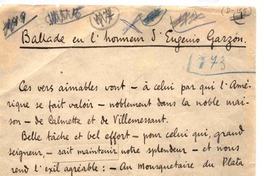 Ballade en l'honneur d'Eugenio Garzon.
Ces vers aimables vont — à celui par qui l'Amé-
rique se fait valoir — noblement dans la noble mai-
son — de Calmette et de Villemessant.
Belle tâche et bel effort — pour celui qui, grand
seigneur, — sait maintenir notre splendeur — et nous
rend l'exil agréable : — Au Mousquetaire du Plata